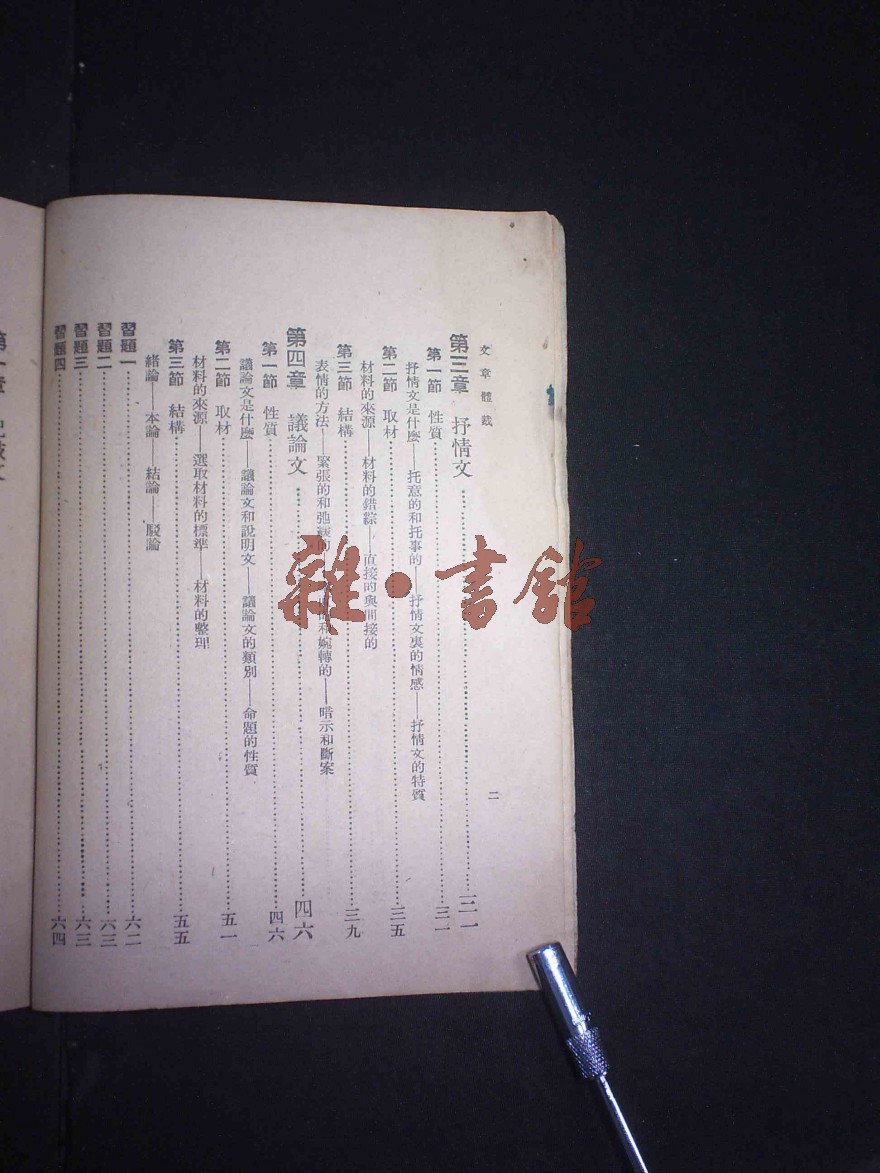 文章體裁
二
第三章 抒情文……三一
第一節 性質……三一
抒情文是什麼——托意的和托事的——抒情文裏的情感——抒情文的特質
第二節 取材……三五
材料的來源——材料的錯綜——直接的與間接的
第三節 結構……三九
表情的方法——緊張的和弛緩的——和婉轉的——暗示和斷案
第四章 議論文……四六
第一節 性質……四六
議論文是什麼——議論文和說明文——議論文的類別——命題的性質
第二節 取材……五一
材料的來源——選取材料的標準——材料的整理
第三節 結構……五五
緒論——本論——結論——駁論
習題一……六二
習題二……六三
習題三……六三
習題四……六四
雜·書館